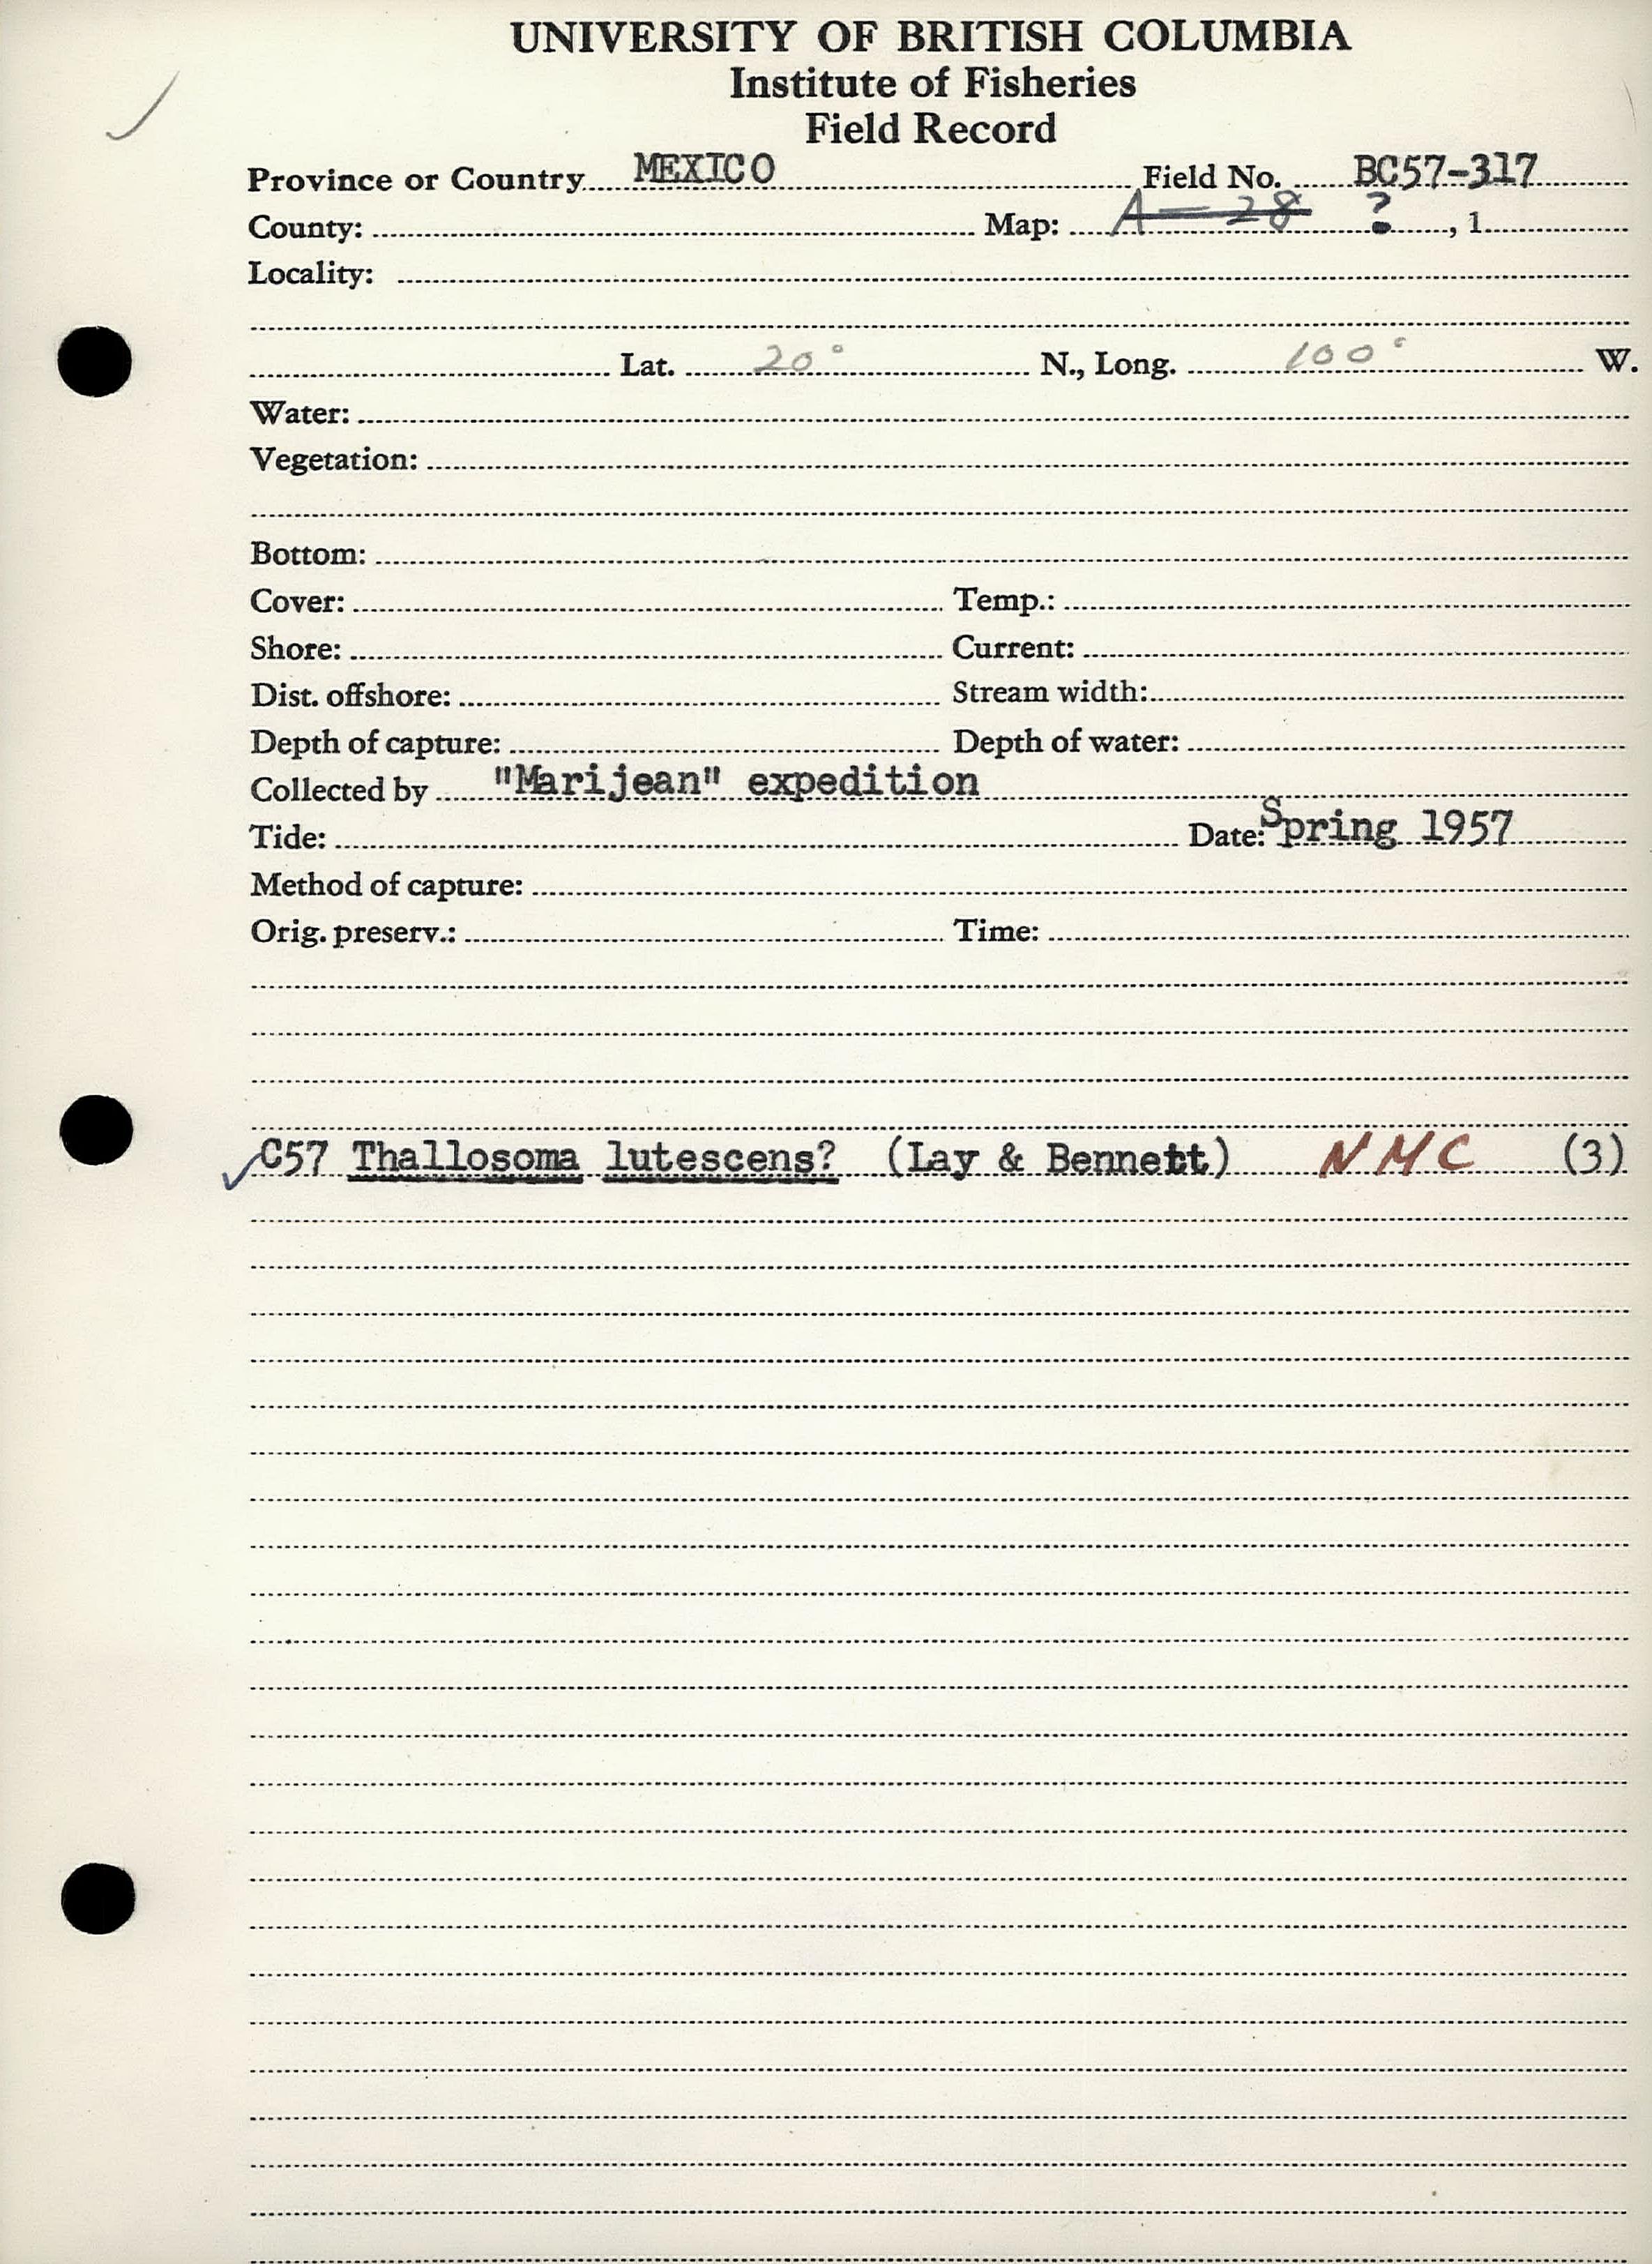 UNIVERSITY OF BRITISH COLUMBIA
Institute of Fisheries
Field Record
Province or Country MEXICO Field No. BC57-317
County: Map: A-28 ? , 1
Locality:
Lat. 20° N., Long. 100° W.
Water:
Vegetation:
Bottom:
Cover: Temp.:
Shore: Current:
Dist. offshore: Stream width:
Depth of capture: Depth of water:
Collected by "Marijean" expedition
Tide: Date: Spring 1957
Method of capture:
Orig. preserv.: Time:
✓ C57 Thallosoma lutescens? (Lay & Bennett) NMC (3)